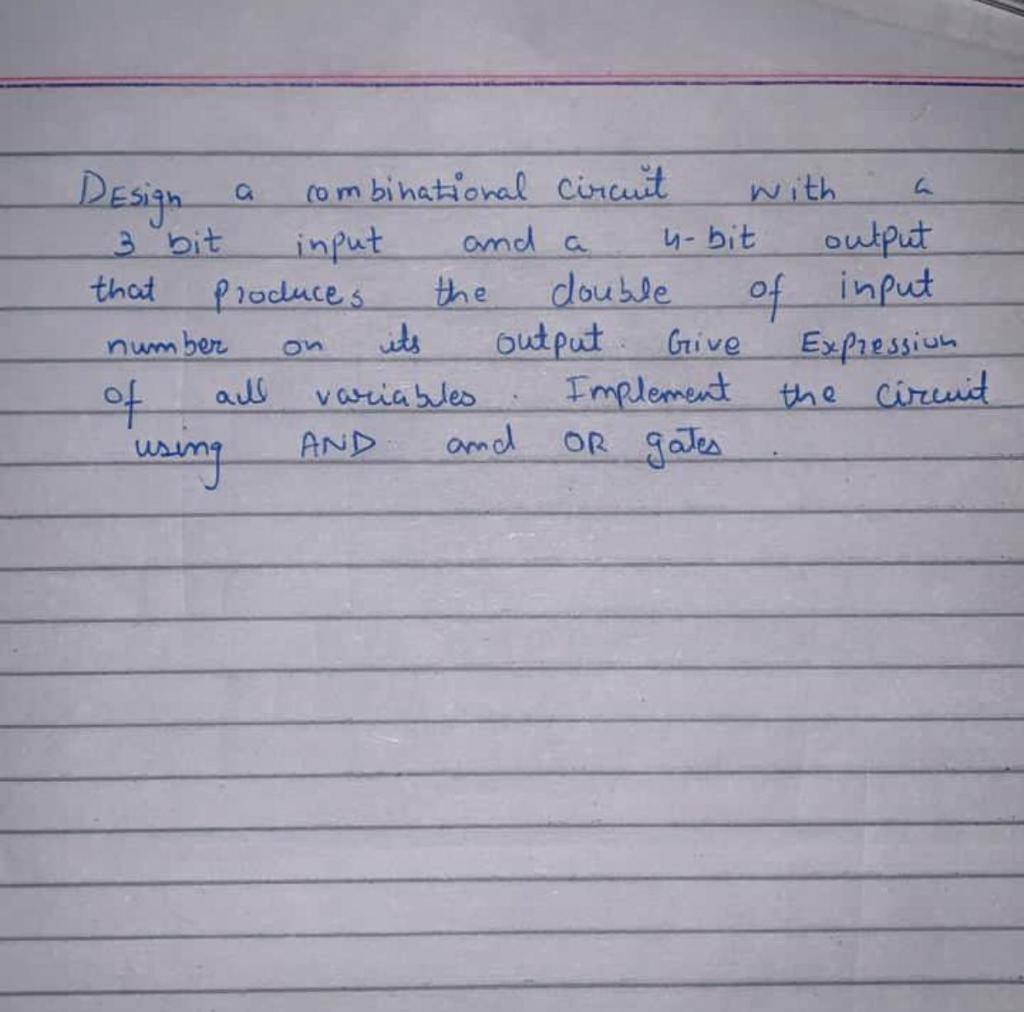 DEsign a combinational circuit with a
3 bit input and a 4-bit output
that produces the double of input
number on its output. Give Expression
of all variables. Implement the circuit
using AND and OR gates.